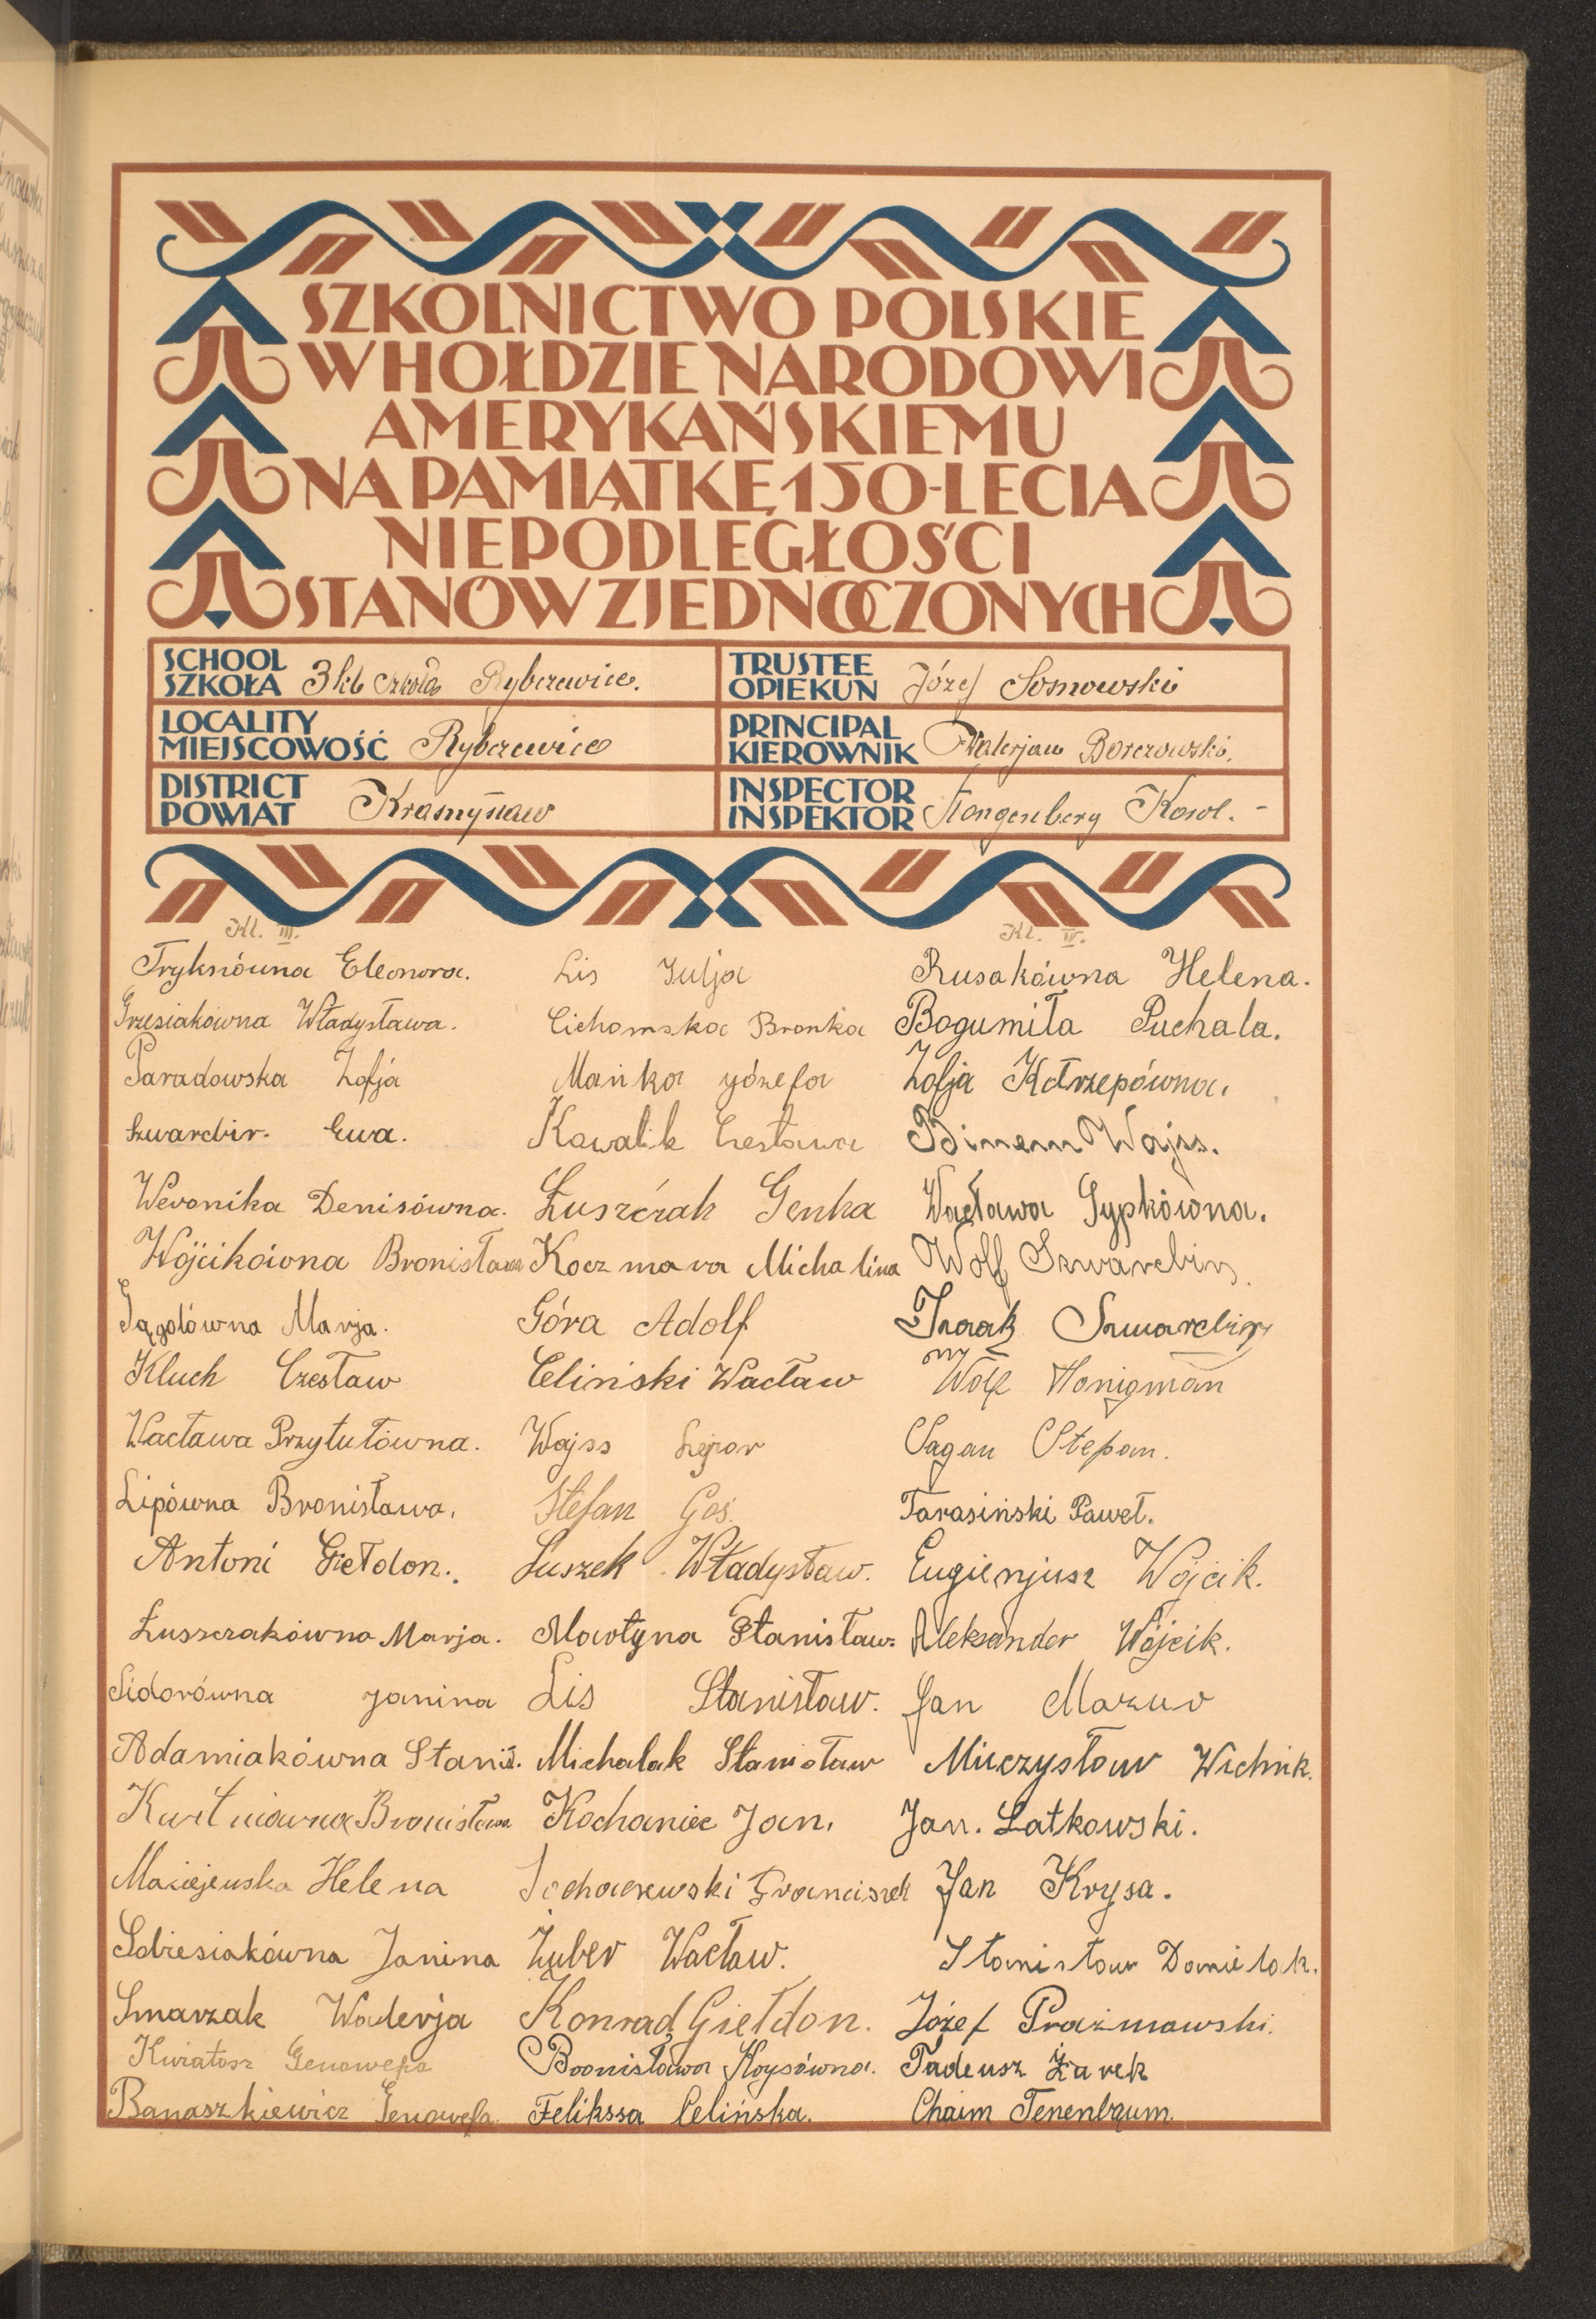 SZKOLNICTWO POLSKIE
W HOŁDZIE NARODOWI
AMERYKAŃSKIEMU
NA PAMIĄTKĘ 150-LECIA
NIEPODLEGŁOŚCI
STANÓW ZJEDNOCZONYCH
SCHOOL
SZKOŁA 3 kl. szkoła Rybczewice.
TRUSTEE
OPIEKUN Józef Sosnowski
LOCALITY
MIEJSCOWOŚĆ Rybczewice
PRINCIPAL
KIEROWNIK Walerjan Borczowski.
DISTRICT
POWIAT Krasnystaw
INSPECTOR
INSPEKTOR Karol.
Kl. III.
Tryksówna Eleonora.
Grzesiakówna Władysława.
Paradowska Zofja
Szwarcbir. Ewa.
Weronika Denisówna.
Wójcikówna Bronisława
Gągolówna Marja.
Kluch Czesław
Wacława Przytułówna.
Lipówna Bronisława.
Antoni Giełdon.
Łuszczakówna Marja.
Sidorówna Janina
Adamiakówna Stanis.
Bronisława
Maciejewska Helena
Janina
Smarzak Walerja
Kwiatosz Genowefa
Banaszkiewicz Genowefa.
Lis Julja
Cichomska Bronka
Mańka Józefa
Kowalik Czesława
Łuszczak Genka
Koczmara Michalina
Góra Adolf
Celiński Wacław
Wajss
Stefan Goś.
Luszek Władysław.
Małtyna Stanisław.
Lis Stanisław.
Michalak Stanisław
Kochaniec Jan.
Sochaczewski Franciszek
Żuber Wacław.
Konrad Giełdon.
Bronisława Krysówna.
Felikssa Celińska.
Kl. IV.
Rusakówna Helena.
Bogumiła Puchala.
Zofja Kołrzepówna.
Binem Wajss.
Wacława Sypkówna.
Wolf Szwarcbir
Icaak Szwarcbir
Wolf Honigman
Sagan Stefan.
Tarasiński Paweł.
Eugienjusz Wójcik.
Aleksander Wójcik.
Jan Mazur
Mieczysław Wichnik.
Jan. Latkowski.
Jan Krysa.
Stanisław Danielak.
Józef Prażmowski.
Tadeusz Żarek
Chaim Tenenbaum.